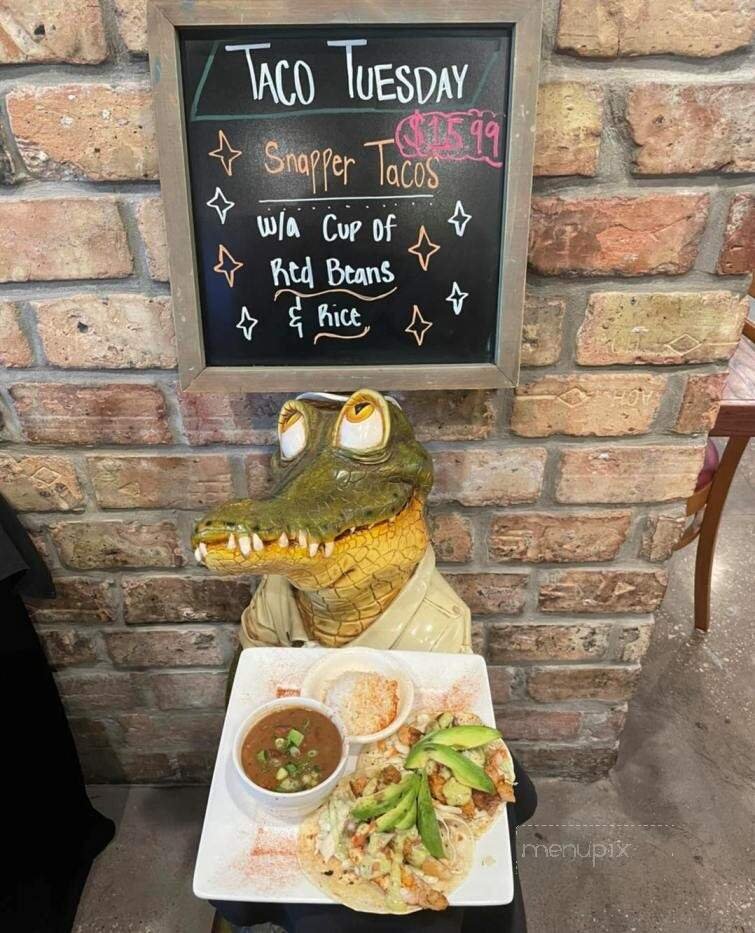 TACO TUESDAY
$15.99
Snapper Tacos
w/a Cup of
Red Beans
& Rice
menupix